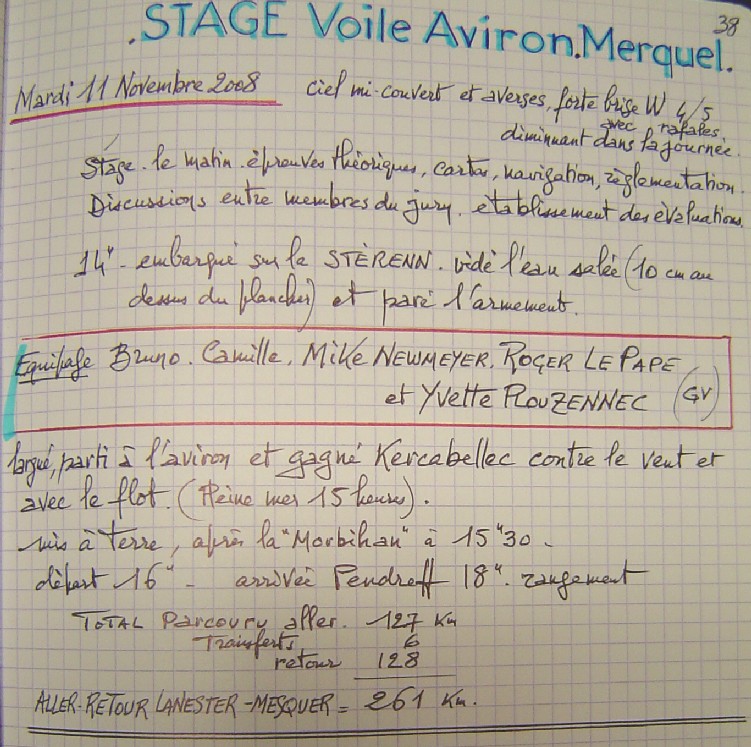 38
.STAGE Voile Aviron.Merquel.
Mardi 11 Novembre 2008 ciel mi-couvert et averses, forte brise W 4/5
avec rafales.
diminuant dans la journée.
Stage. le matin. épreuves théoriques, cartes, navigation, règlementation.
Discussions entre membres du jury. établissement des èvaluations.
14h - embarqué sur le STÈRENN. vidé l'eau salée (10 cm au
dessus du plancher) et paré l'armement.
Equipage Bruno. Camille. Mike NEWMEYER. ROGER LE PAPE
et Yvette PLOUZENNEC (GV)
largué, parti à l'aviron et gagné Kercabellec contre le vent et
avec le flot. (Pleine mer 15 heures).
mis à terre, après la "Morbihan" à 15h30.
dèpart 16h - arrivée Pendreff 18h. rangement
TOTAL Parcouru aller. 127 Km
Transferts 6
retour 128
ALLER-RETOUR LANESTER-MESQUER = 261 Km.